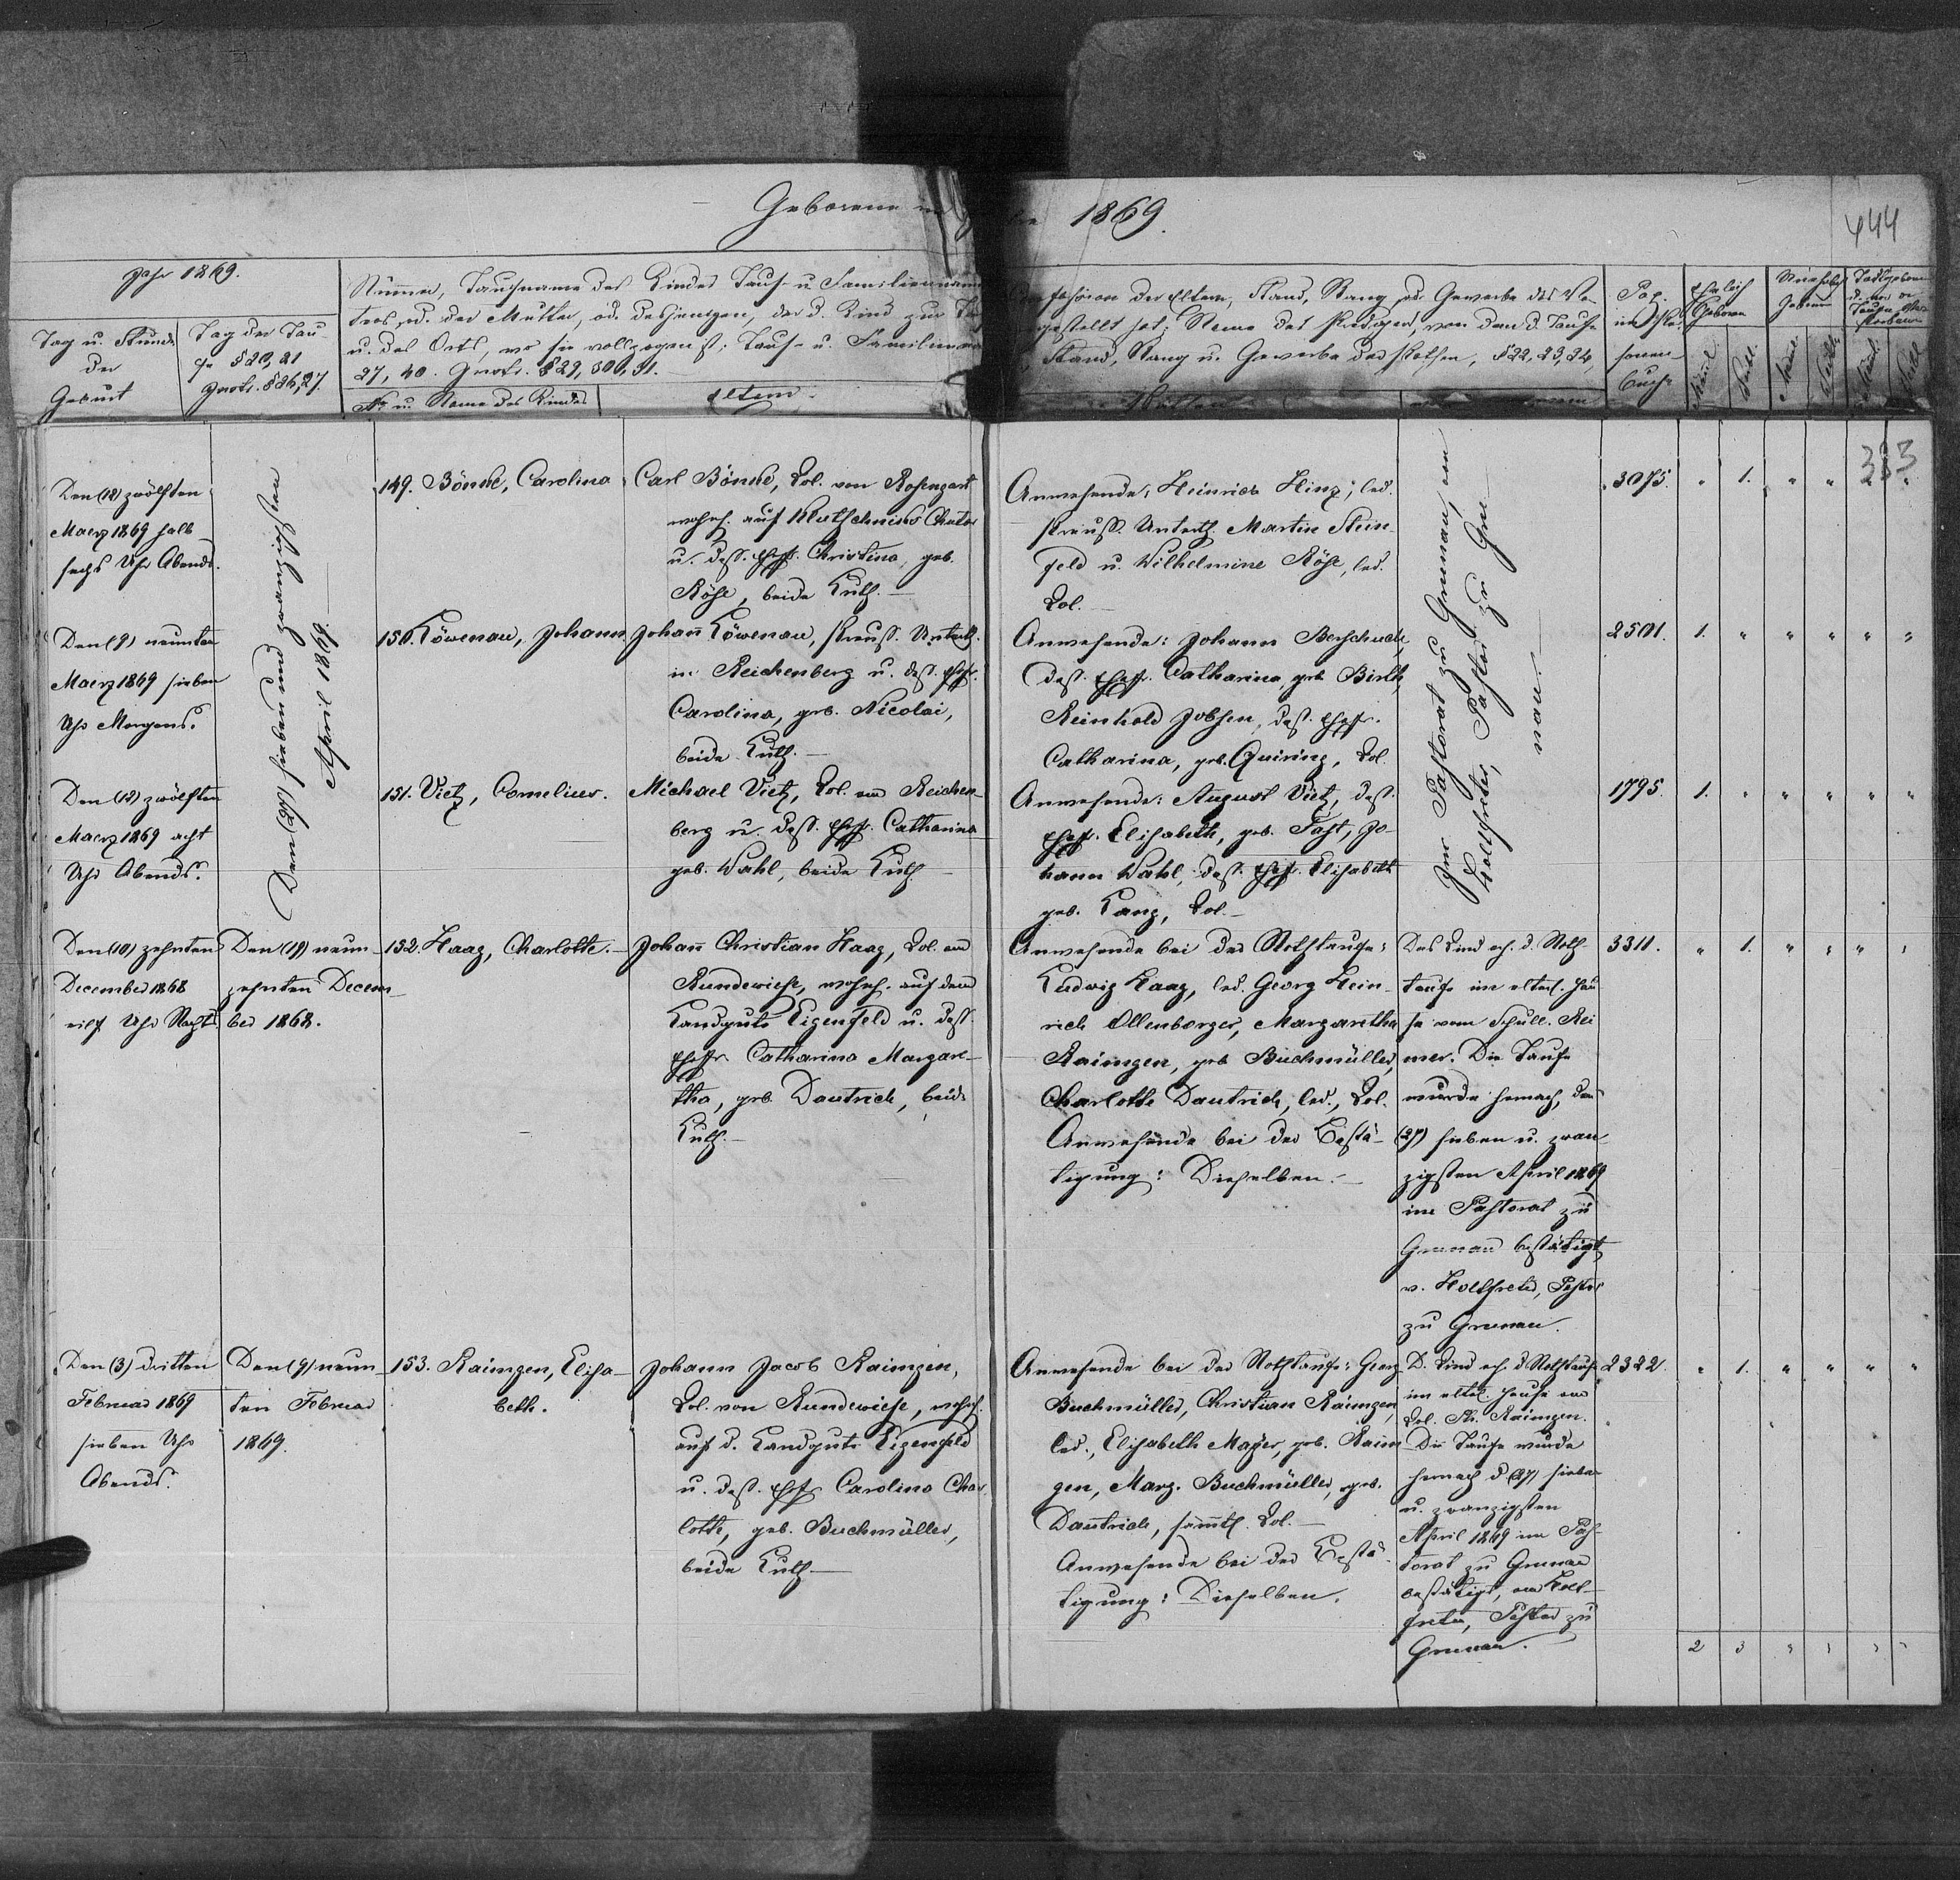 Geborene in
1869.
444
Jahr 1869.
Tag u. Stunde
der
Geburt
Tag der Tau-
fe § 20, 21
Nummer, Taufname des Kindes Tauf- u. Familienname
u. des Orts, wo sie vollzogen ist; Tauf- u. Familienname
27, 40. § 29, 30, 31.
No u. Name des Kindes
Eltern.
der Eltern, Stand, Rang od. Gewerbe des
gestellt hat; Name des Predigers, von dem d. Taufe
Stand, Rang u. Gewerbe § 22, 23, 24,
Pag.
im Per-
sonen
Buche
Ehelich
Geboren
Männl.
Weibl.
Unehelich
Geboren
Männl.
Weibl.
Todtgeborene
333
Den (12) zwölften
Maerz 1869 halb
sechs Uhr Abends.
Den (27) sieben und zwanzigsten
April 1869.
149. Bönke, Carolina
Carl Bönke, Col. von Rosengart
wohnh. auf Chutor
u. dess. Ehefr. Christina, geb.
Röse, beide Luth.
Anwesende: Heinrich Hinz, led.
Preuss. Unterth. Martin Stein-
feld u. Wilhelmine Röse, led.
Col.
Im Pastorat zu Grunau, von
Holtfreter, Pastor zu Gru-
nau.
3075. " 1. " " " "
Den (9) neunten
Maerz 1869 sieben
Uhr Morgens.
150. Löwenau, Johann
Johann Löwenau, Preuss. Unterth.
in Reichenberg u. dess. Ehefr.
Carolina, geb. Nicolai,
beide Luth.
Anwesende: Johann Berschuck,
dess. Ehefr. Catharina, geb. Birth,
Reinhold Jobsen, dess. Ehefr.
Catharina, geb. Quiring, Col.
2501. 1. " " " " "
Den (12) zwölften
Maerz 1869 acht
Uhr Abends.
151. Vietz, Cornelius.
Michael Vietz, Col. von Reichen-
berg u. dess. Ehefr. Catharina
geb. Wahl, beide Luth.
Anwesende: August Vietz, dess.
Ehefr. Elisabeth, geb. Fast, Jo-
hann Wahl, dess. Ehefr. Elisabeth
geb. Lanz, Col.
1795. 1. " " " " "
Den (10) zehnten
December 1868
eilf Uhr Nachts
Den (19) neun-
zehnten Decem-
ber 1868.
152. Haag, Charlotte.
Johann Christian Haag, Col. von
Rundewiese, wohnh. auf dem
Landgute Eigenfeld u. dess.
Ehefr. Catharina Margare-
tha, geb. Dautrich, beide
Luth.
Anwesende bei der Nothtaufe:
Ludwig Haag, led. Georg Hein-
rich Ollenborger, Margaretha
Raimgen, geb. Buchmüller,
Charlotte Dautrich, led., Col.
Anwesende bei der Bestä-
tigung: Dieselben.
Das Kind erh. d. Noth-
taufe im elterl. Hau
se vom Schull. Rei
mer. Die Taufe
wurde hernach, den
(27) sieben u. zwan-
zigsten April 1869
im Pastorat zu
Grunau bestätigt,
v. Holtfreter, Pastor
zu Grunau.
3311. " 1. " " " "
Den (3) dritten
Februar 1869
sieben Uhr
Abends.
Den (9) neun-
ten Februar
1869.
153. Raimgen, Elisa-
beth.
Johann Jacob Raimgen,
Col. von Rundewiese, wohnh.
auf d. Landgute Eigenfeld
u. dess. Ehefr. Carolina Char-
lotte, geb. Buchmüller,
beide Luth.
Anwesende bei der Nothtaufe: Georg
Buchmüller, Christian Raimgen,
led., Elisabeth Mayer, geb. Raim-
gen, Marg. Buchmüller, geb.
Dautrich, sämmtl. Col.
Anwesende bei der Bestä-
tigung: Dieselben.
D. Kind erh. d. Nothtaufe
im elterl. Hause von
Col. Raimgen.
Die Taufe wurde
hernach d. (27) sieben
u. zwanzigsten
April 1869 im Pas-
torat zu Grunau
bestätigt, von Holt-
freter, Pastor zu
Grunau.
2322. " 1. " " " "
2 3 " " " "